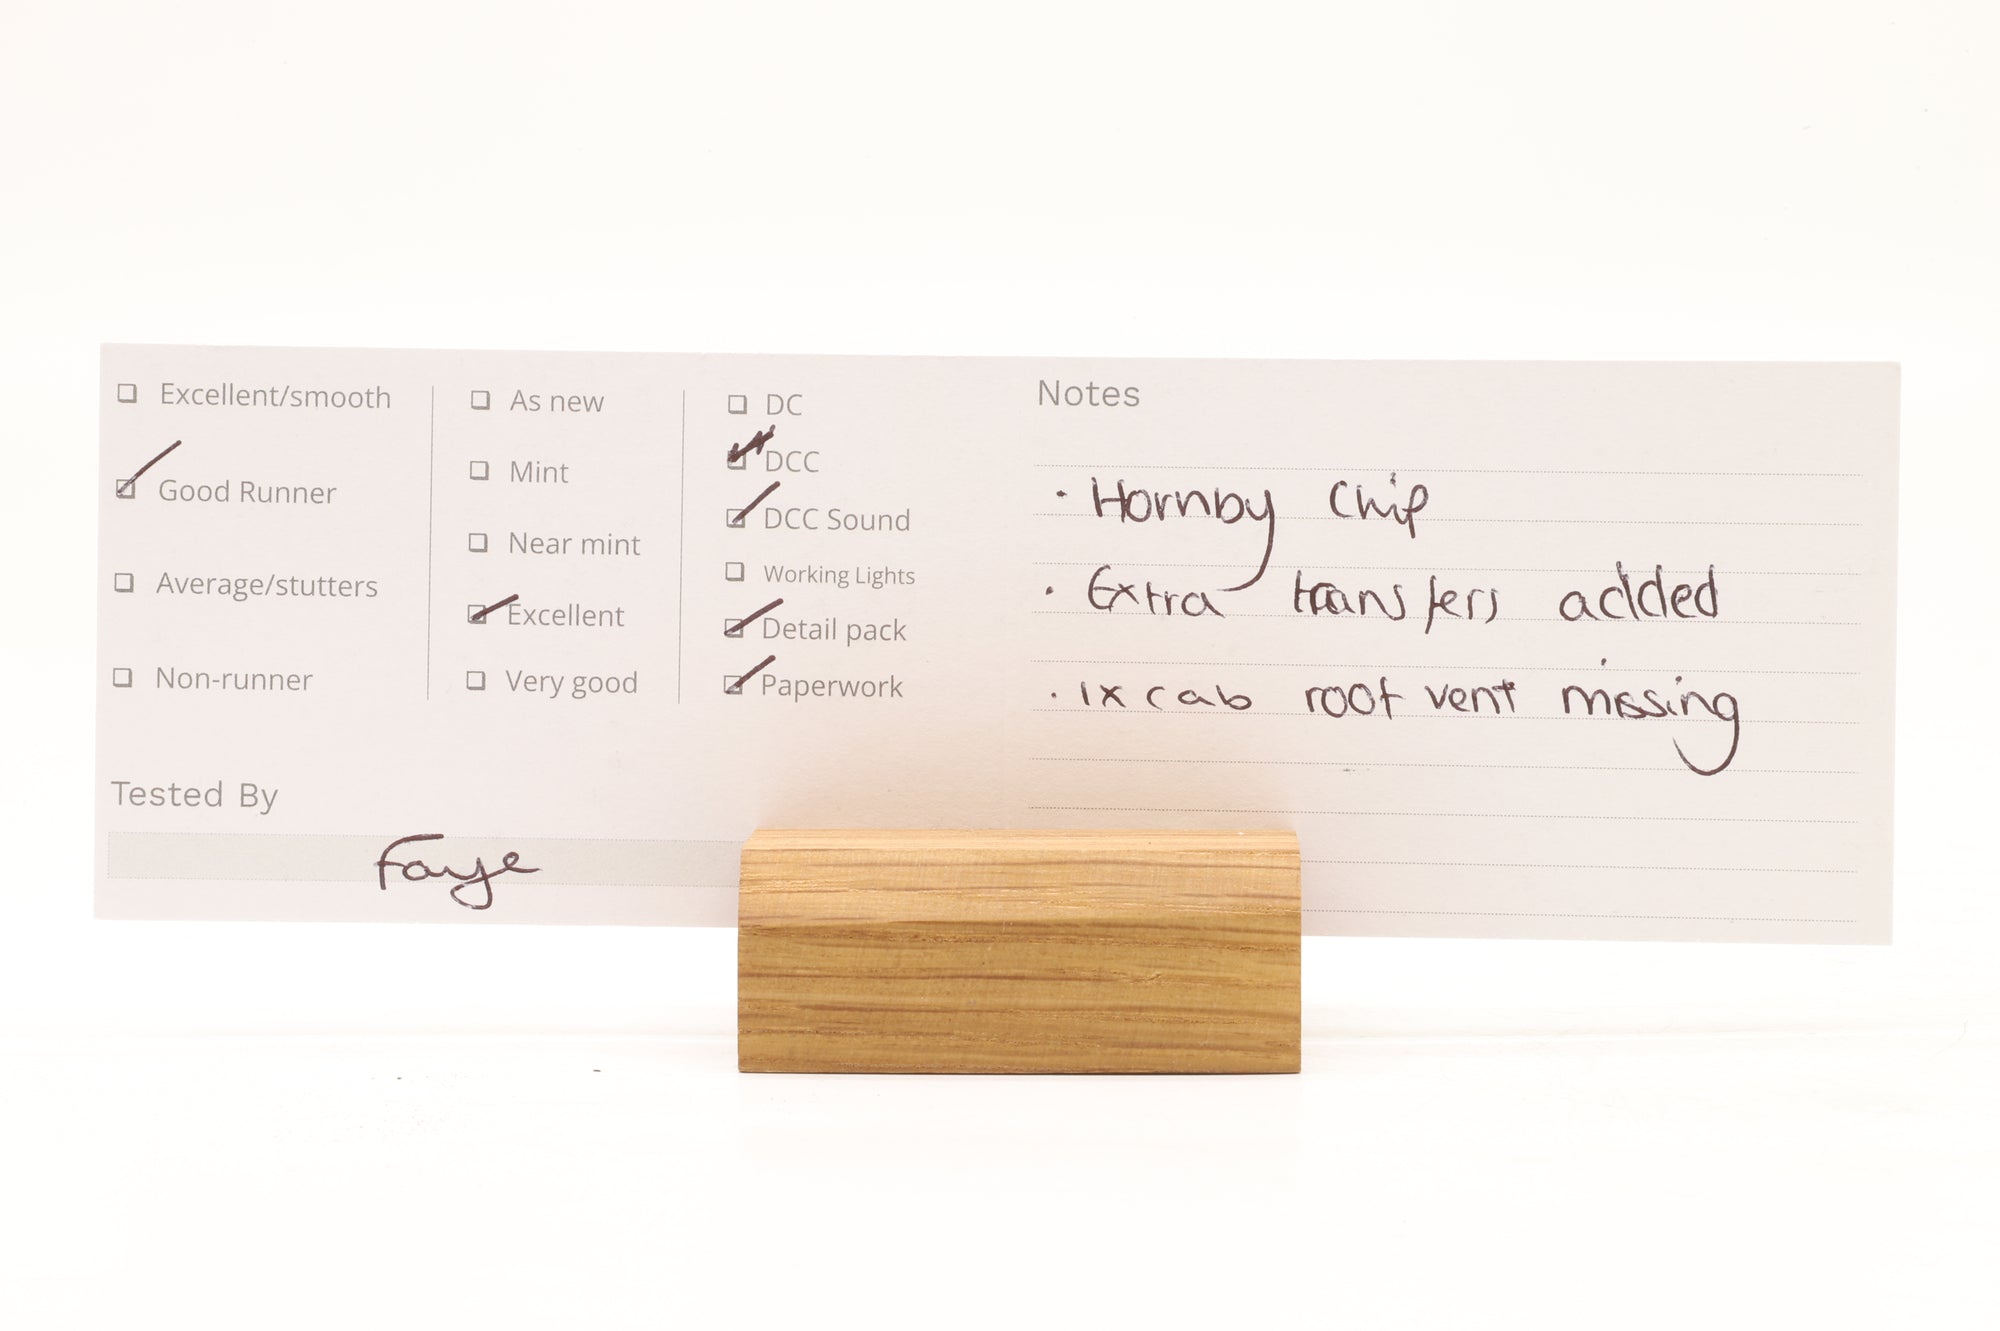 Excellent/smooth
Good Runner
Average/stutters
Non-runner
As new
Mint
Near mint
Excellent
Very good
DC
DCC
DCC Sound
Working Lights
Detail pack
Paperwork
Tested By
Faye
Notes
· Hornby Chip
· Extra transfers added
· 1x cab roof vent missing